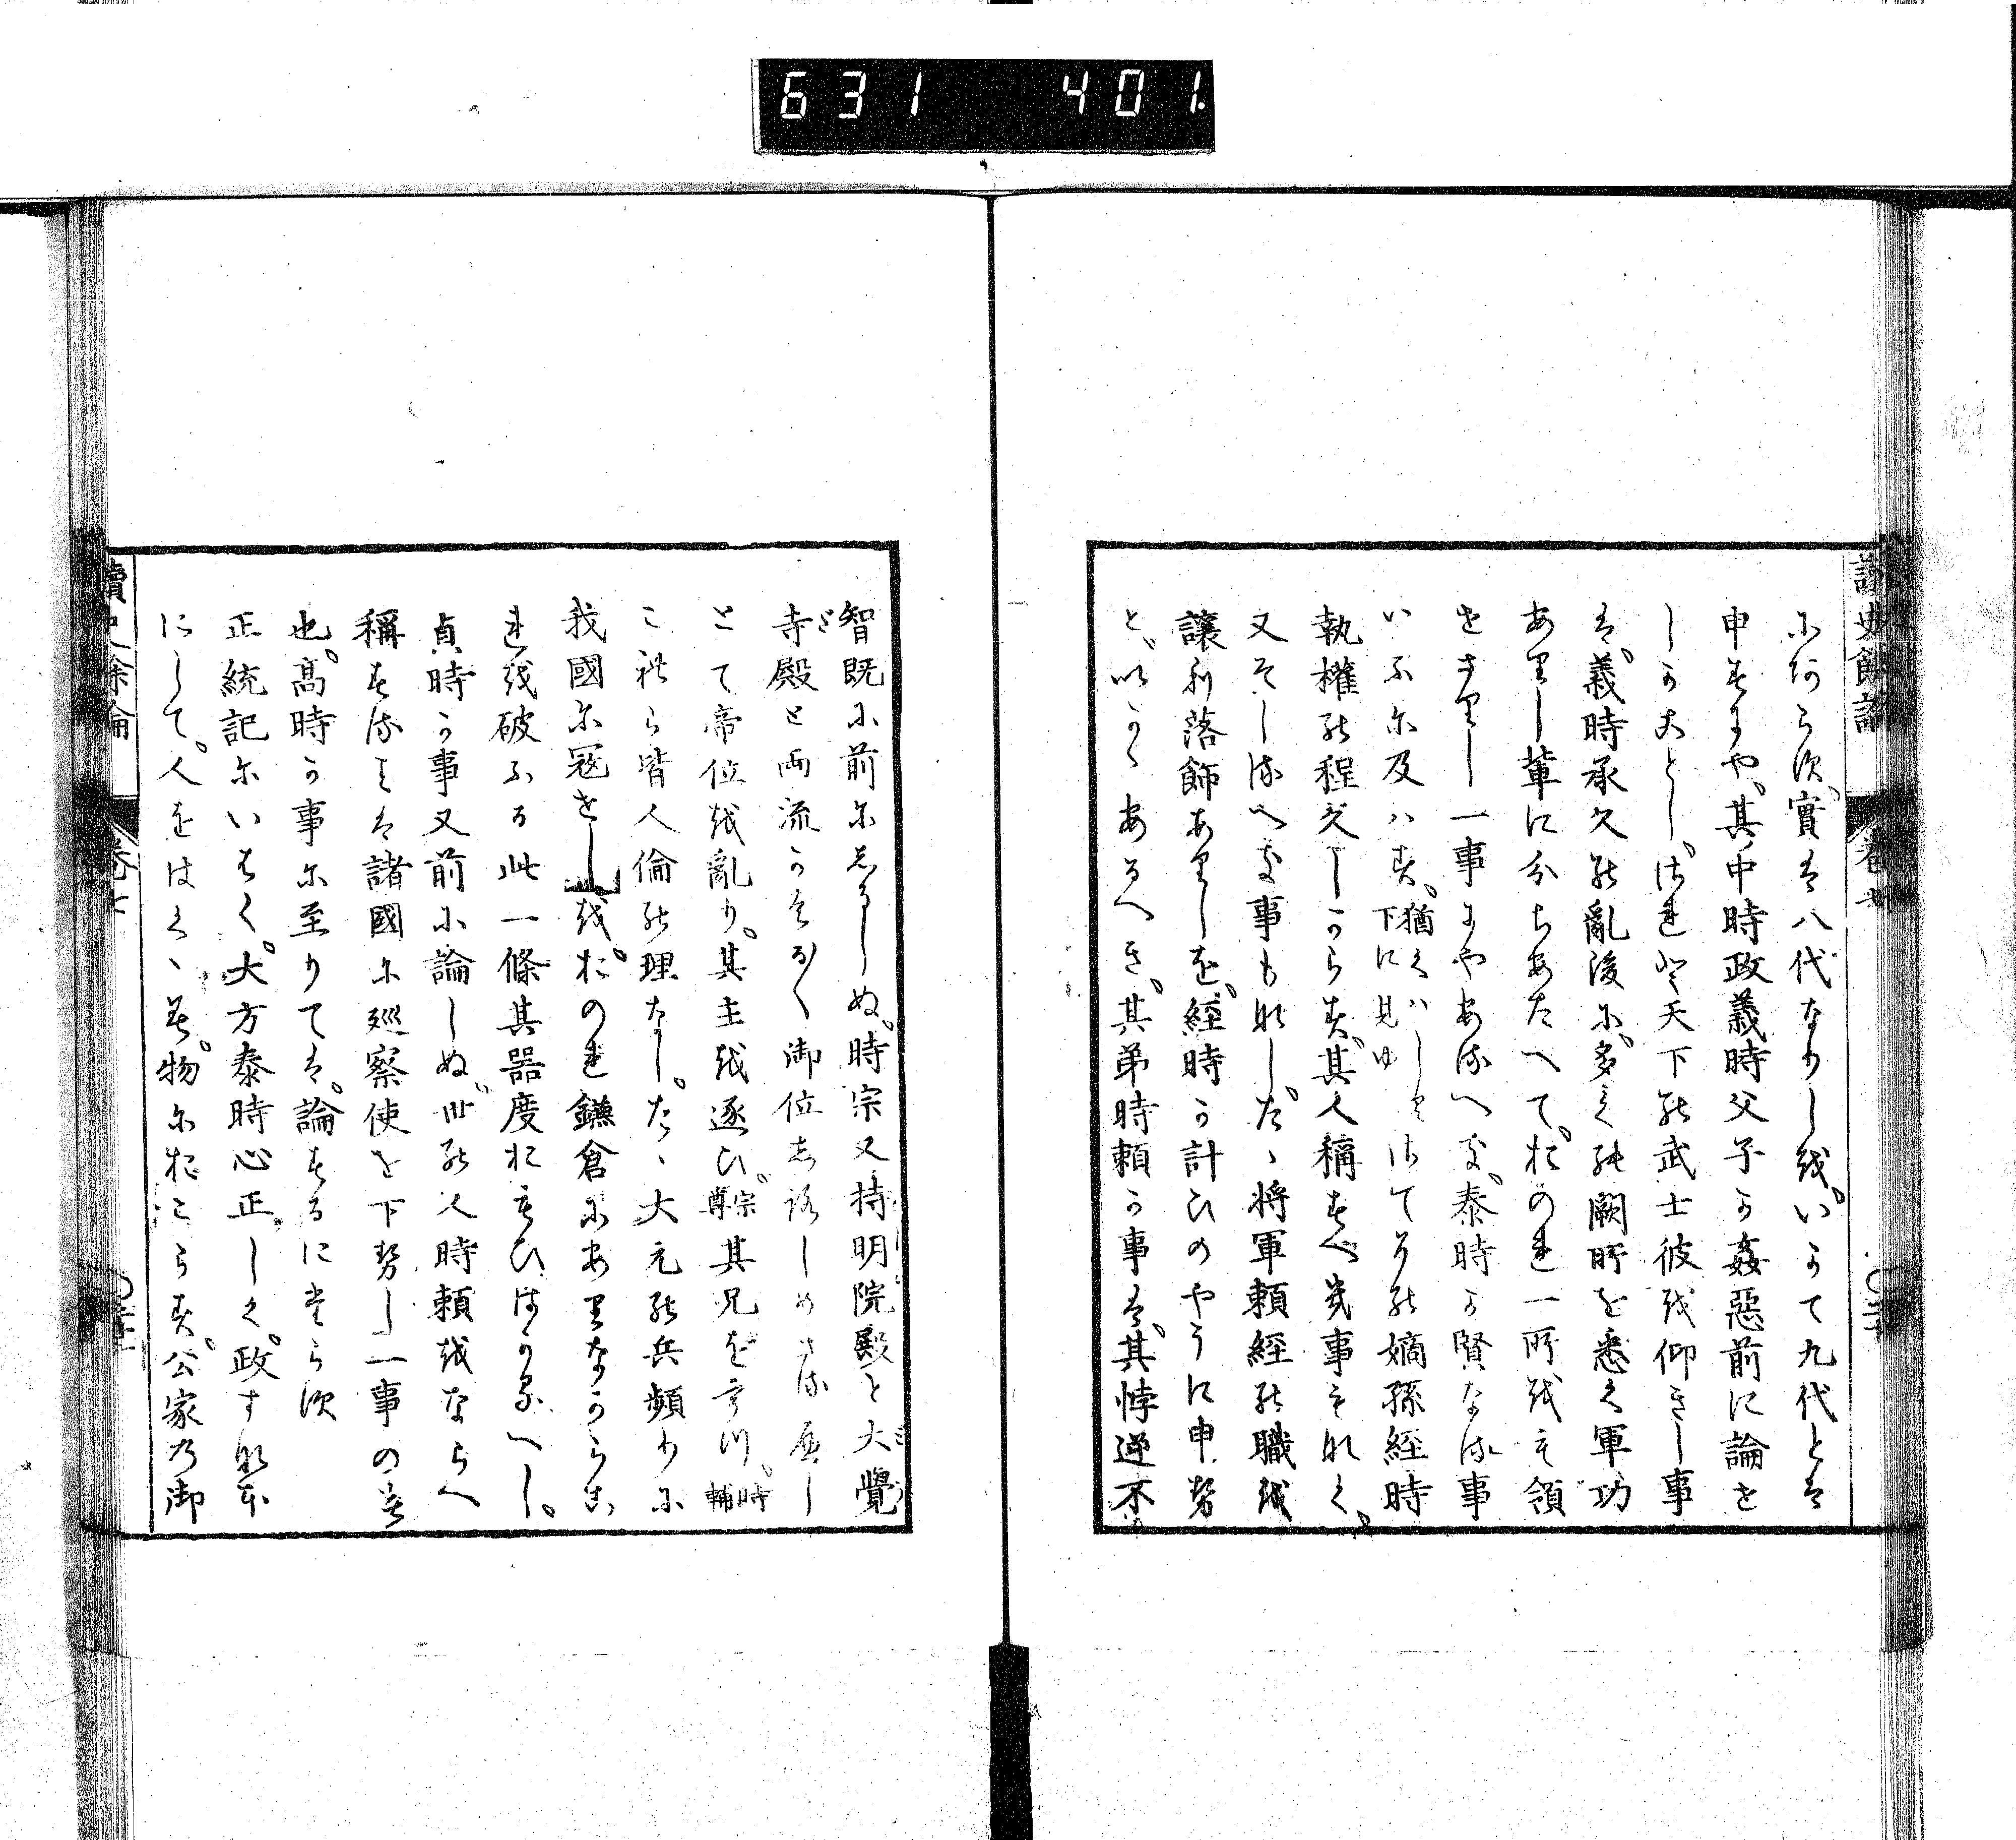 631 401.
讀史餘論
卷七
にあらず、實は八代なりしを、いかで九代とは
申すにや、其中時政義時父子が姦惡前に論せ
しがことし、されど天下の武士彼を仰ぎし事
は、義時承久の亂後に、多くの闕所を悉く軍功
ありし輩に分ちあたへて、おのれ一所をも領
せざりし一事にやあるべき、泰時が賢なる事
いふに及ハず、猶くハしくは下に見ゆ さてその嫡孫經時
執權の程久しからず、其人稱すべき事もなく、
又そしるべき事もなし、たゝ將軍頼經の職を
讓り落飾ありしを、經時が計ひのやうに申せ
ど、いかゝあるべき、其弟時頼が事は、其悖逆不
智既に前にしるしぬ、時宗又持明院殿と大覺
寺殿と両流かはる〱御位しろしめさるべし
とて帝位を亂り、其主を逐ひ、宗尊 其兄をころしつ、時輔
これら皆人倫の理なし、たゝ大元の兵頻りに
我國に寇せしを、おのれ鎌倉にありながらこ
れを破れる此一條其器度おもひはかるべし、
貞時が事又前に論しぬ、世の人時頼をならべ
稱するは諸國に巡察使を下せし一事のみ
也、高時が事に至りては、論するにたらず
正統記にいはく、大方泰時心正しく、政すなほ
にして、人をはくゝみ、物におこらず、公家の御
讀史餘論
卷七